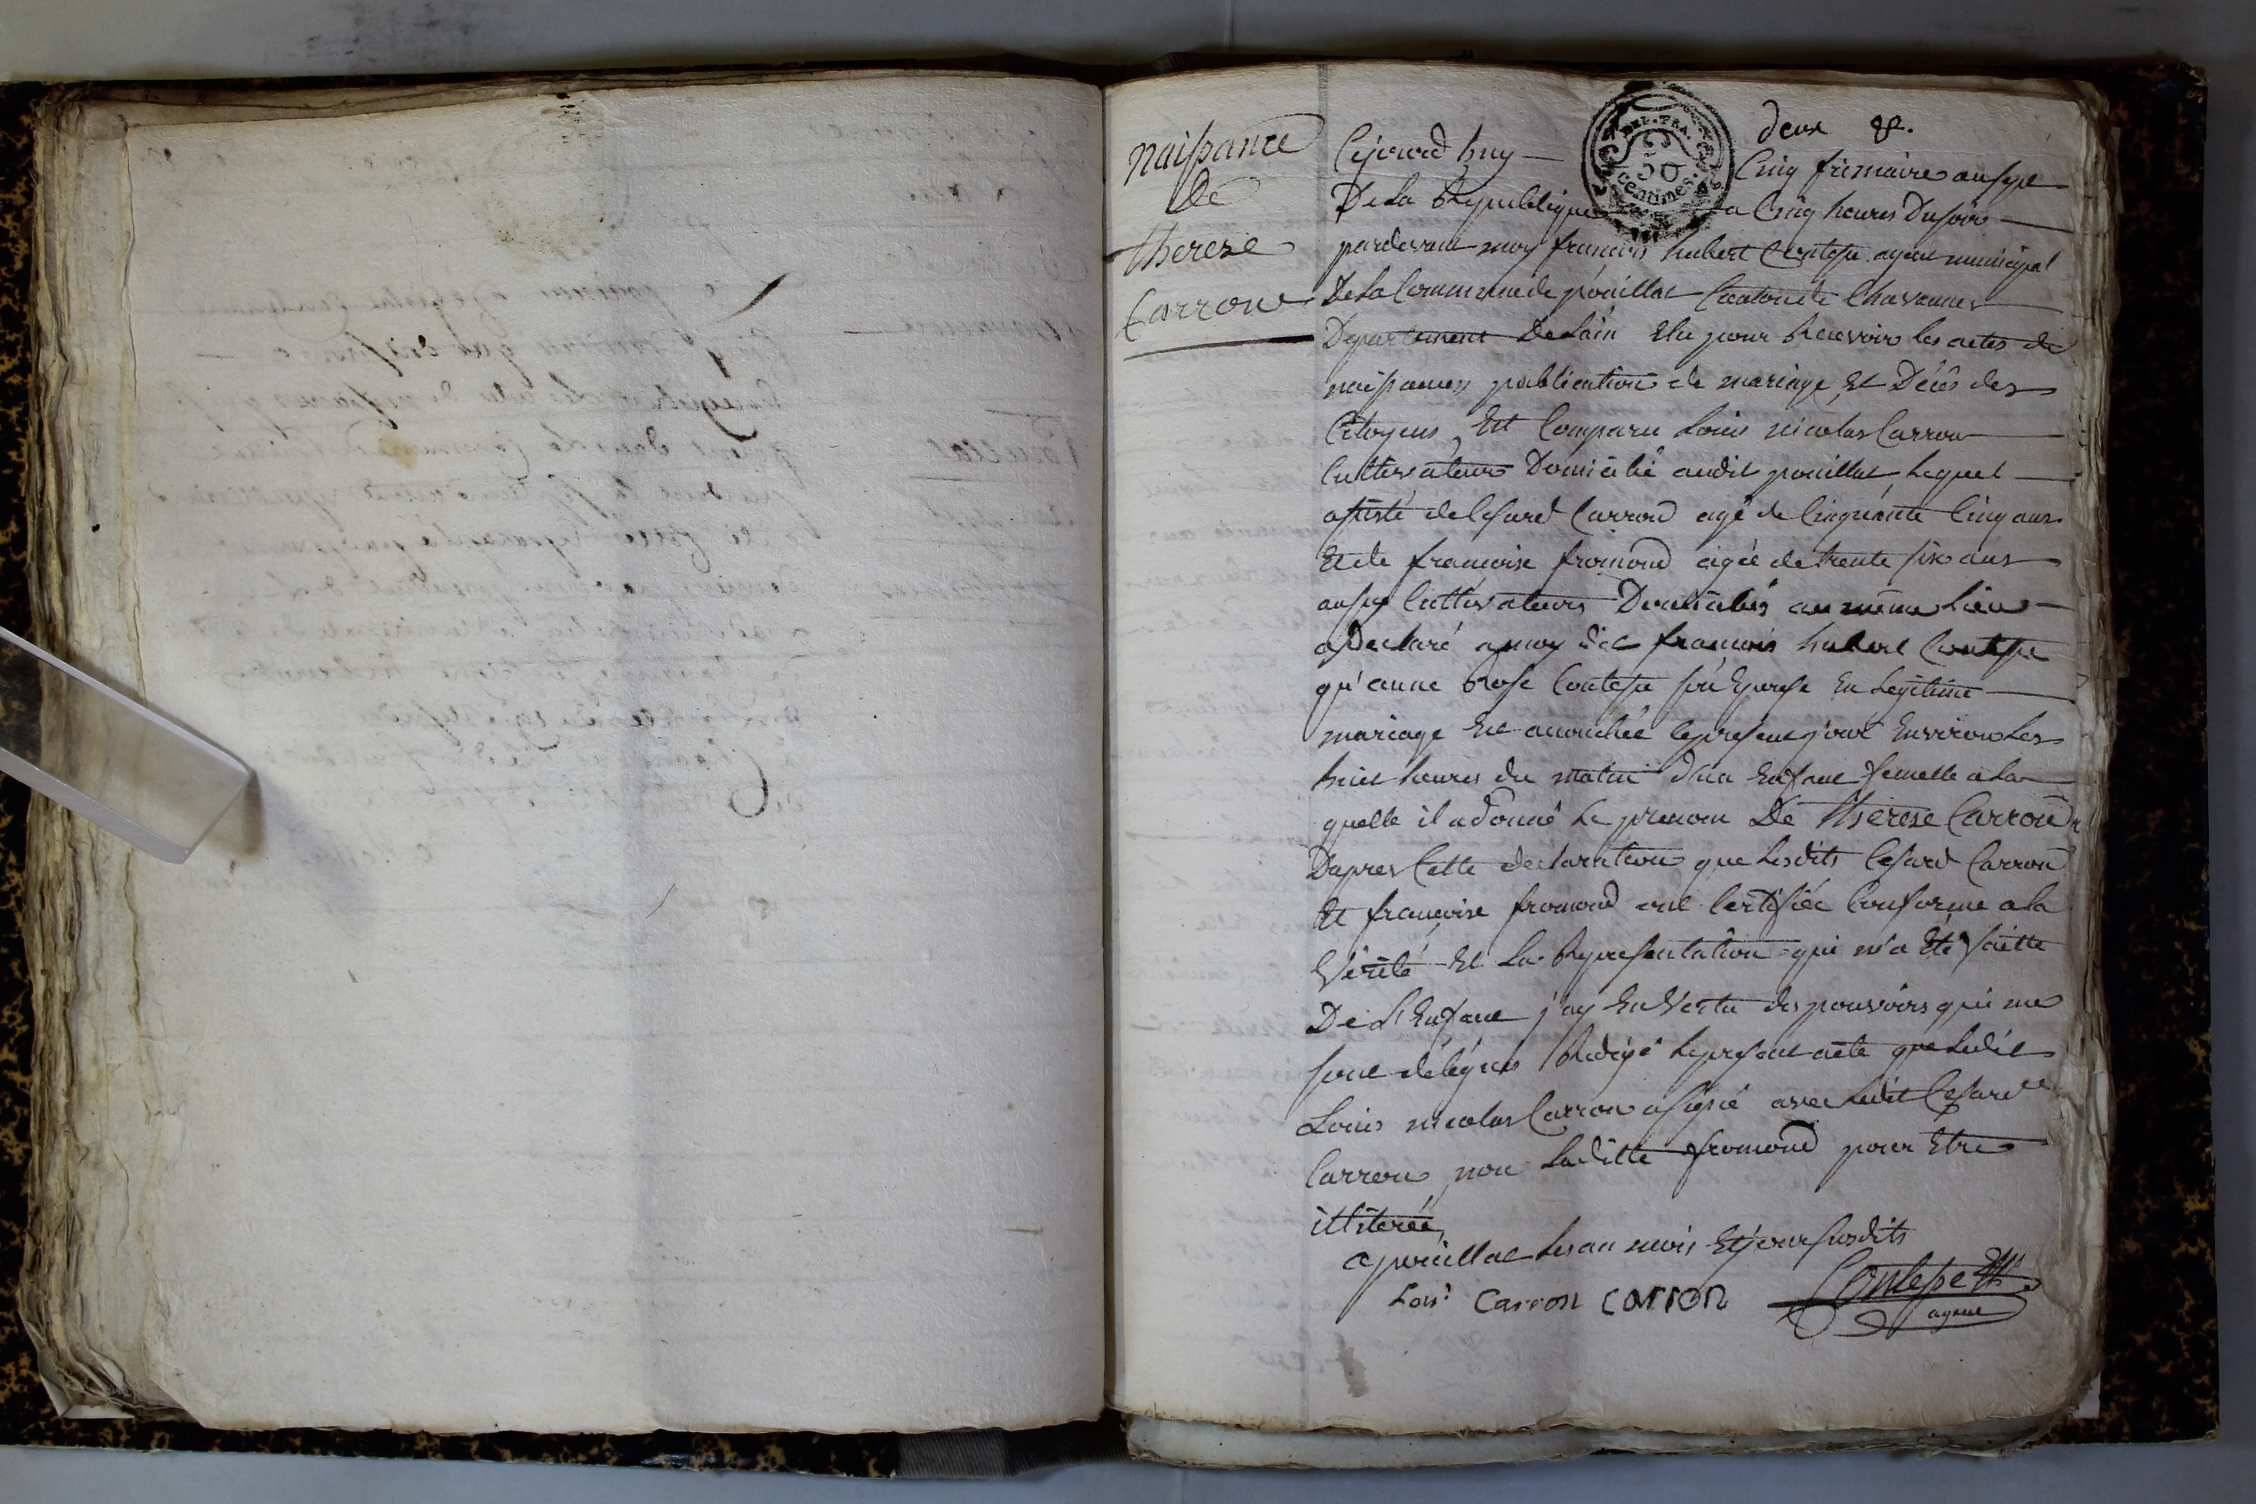 deux
naissance
De
therese
Carron
REP. FRA.
50
centimes.
Cejourd huy cinq frimaire an sept
De la Republique a Cinq heures Du soir
pardevant moy francois hubert Contesse agent municipal
De la Commune de poüillat Canton de Chavannes
Departement De Lain Elu pour Recevoir les actes de
naissances publication de mariage, et Décès des
Citoyens, Est Comparu Louis nicolas Carron
Cultivateur Domicilié audit poüillat, Lequel
assisté de Cesard Carron agé de Cinquante Cinq ans
Et de francoise fromond agée de trente six ans
aussy Cultivateurs Domiciliés au même Lieu
a Declaré a moy dit francois hubert Contesse
qu'anne Rose Contesse son Epouse En Legitime
mariage Est acouchée le present jour Environ Les
huit heures du matin d'un Enfant femelle a la
quelle il a donné Le prenom De Therese Carron
Dapres Cette declaration que Lesdits Cesard Carron
Et francoise fromond ont Certifiée Conforme a la
Vérité, Et La Representation qui m'a Eté faitte
De L'Enfant j'ay En Vertu des pouvoirs qui me
sont délégués Redigé Le present acte que Ledit
Louis nicolas Carron a signé avec Ledit Cesard
Carron, non Laditte fromond pour Etre
illiterée,
a poüillat Les an mois Et jour susdits
Carron carron Contesse
agent